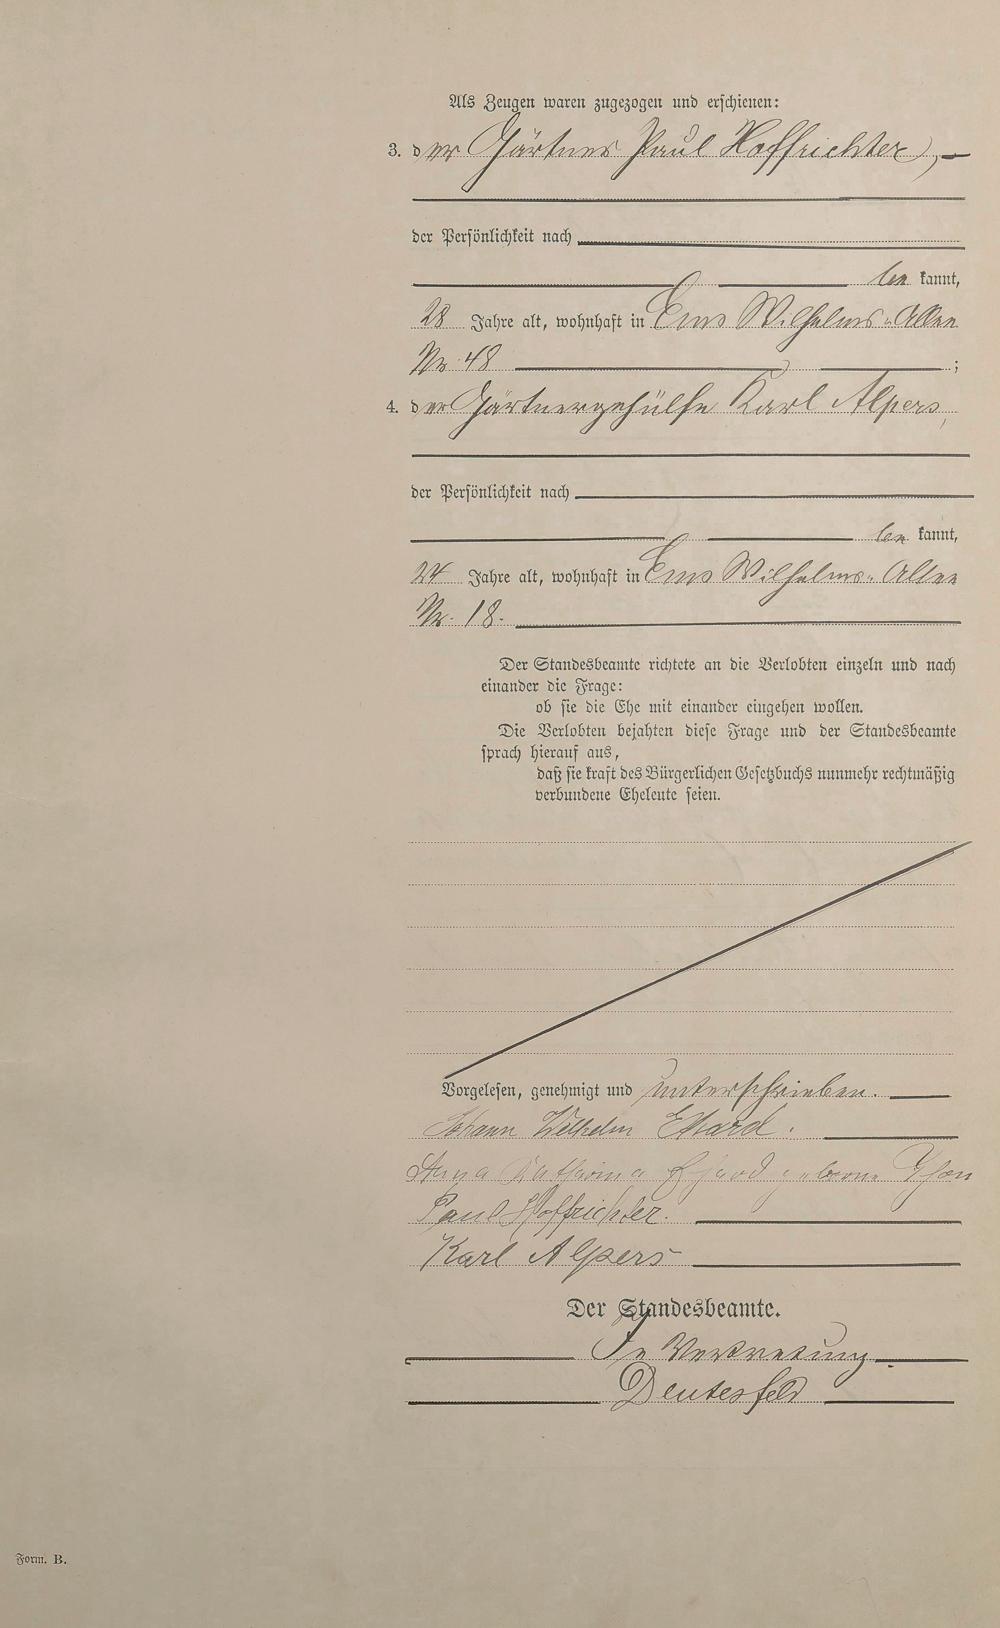 Als Zeugen waren zugezogen und erschienen:
3. der Gärtner Paul Hoffrichter,
der Persönlichkeit nach
be kannt,
28 Jahre alt, wohnhaft in Ems Wilhelms-Allee
Nr. 48 ;
4. der Gärtnergehülfe Karl Alpers,
der Persönlichkeit nach
be kannt,
24 Jahre alt, wohnhaft in Ems Wilhelms-Allee
Nr. 18.
Der Standesbeamte richtete an die Verlobten einzeln und nach
einander die Frage:
ob sie die Ehe mit einander eingehen wollen.
Die Verlobten bejahten diese Frage und der Standesbeamte
sprach hierauf aus,
daß sie kraft des Bürgerlichen Gesetzbuchs nunmehr rechtmäßig
verbundene Eheleute seien.
Vorgelesen, genehmigt und unterschrieben.
Johann Wilhelm
Anna Katharina geborene
Paul Hoffrichter.
Karl Alpers
Der Standesbeamte.
In Vertretung
Deutesfeld
Form. B.